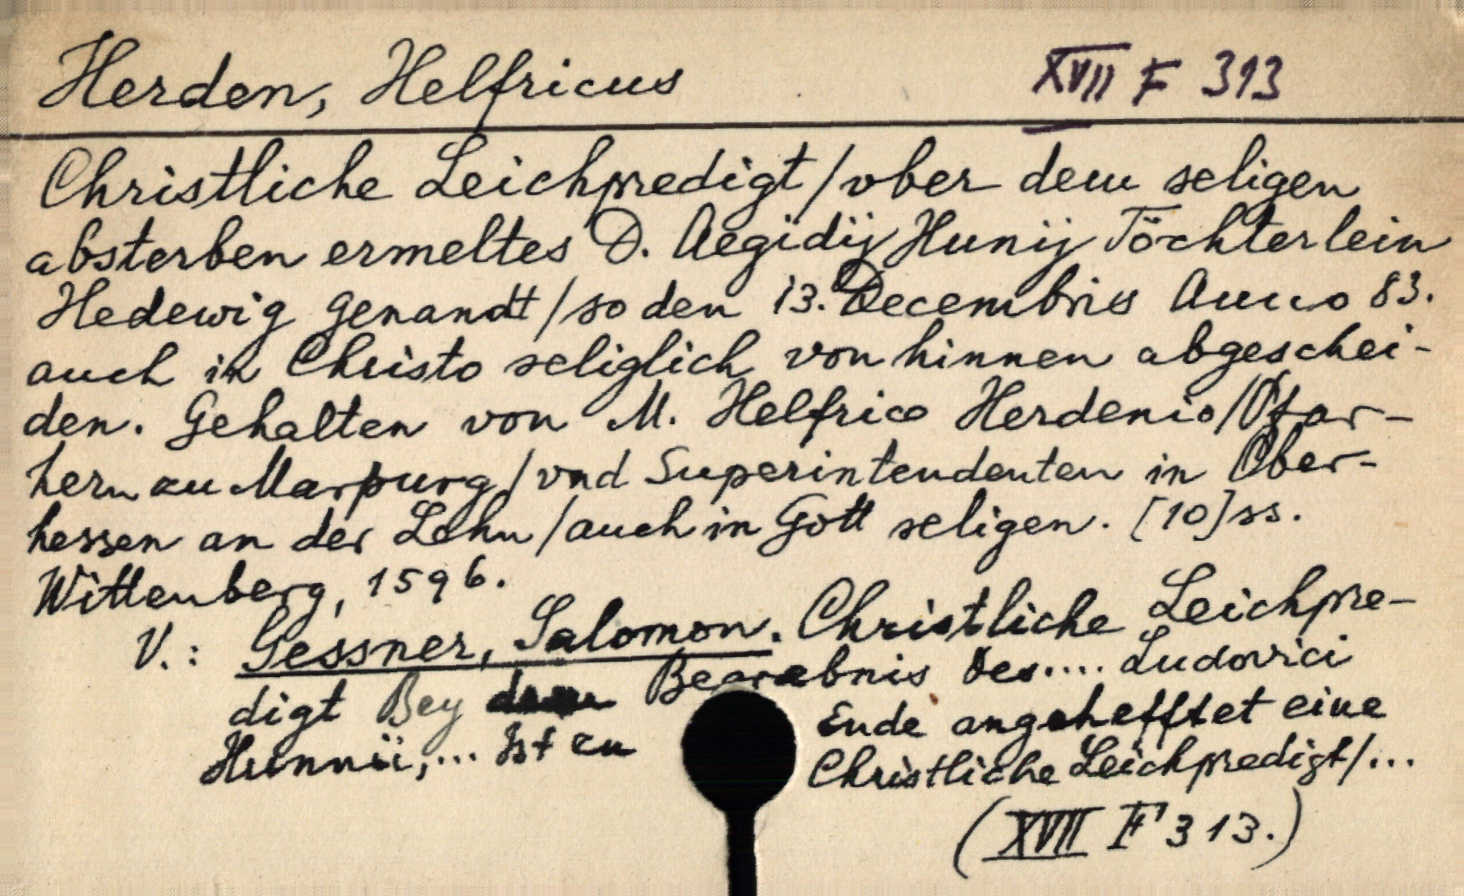 Herden, Helfricus XVII F 313
Christliche Leichpredigt/vber dem seligen
absterben ermeltes D. Aegidij Hunij Töchterlein
Hedewig genandt/so den 13. Decembris Anno 83.
auch in Christo seliglich von hinnen abgeschei-
den. Gehalten von M. Helfrico Herdenio/Pfar-
hern zu Marpurg/vnd Superintendenten in Ober-
hessen an der Lohn/auch in Gott seligen. [10]ss.
Wittenberg, 1596.
V.: Gessner, Salomon. Christliche Leichpre-
digt Bey Begraebnis des.... Ludovici
Hunnii,... Ist zu Ende angehefftet eine
Christliche Leichpredigt/...
(XVII F 313.)